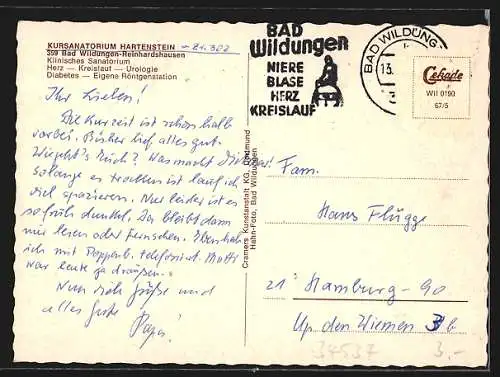 KURSANATORIUM HARTENSTEIN
359 Bad Wildungen-Reinhardshausen
Klinisches Sanatorium
Herz — Kreislauf — Urologie
Diabetes — Eigene Röntgenstation
Ihr Lieben!
Die Kurzeit ist schon halb
vorbei. Bisher lief alles gut.
Wie geht's Euch? Was macht
Solange es trocken ist lauf ich
viel spazieren. Nur leider ist es
so früh dunkel. Da bleibt dann
nur lesen oder Fernsehen. Eben hab
ich mit telefoniert.
war heute ga draußen.
Nun Grüße und
alles Gute
Papa!
Cramers Kunstanstalt KG, Dortmund
Hahn-Foto, Bad Wildungen
BAD
Wildungen
NIERE
BLASE
HERZ
KREISLAUF
BAD WILDUNG
13.
Cekade
WII 0190
67/5
Fam.
Hans Flügge
21 Hamburg-90
Up den Wiemen b
34537
3,-